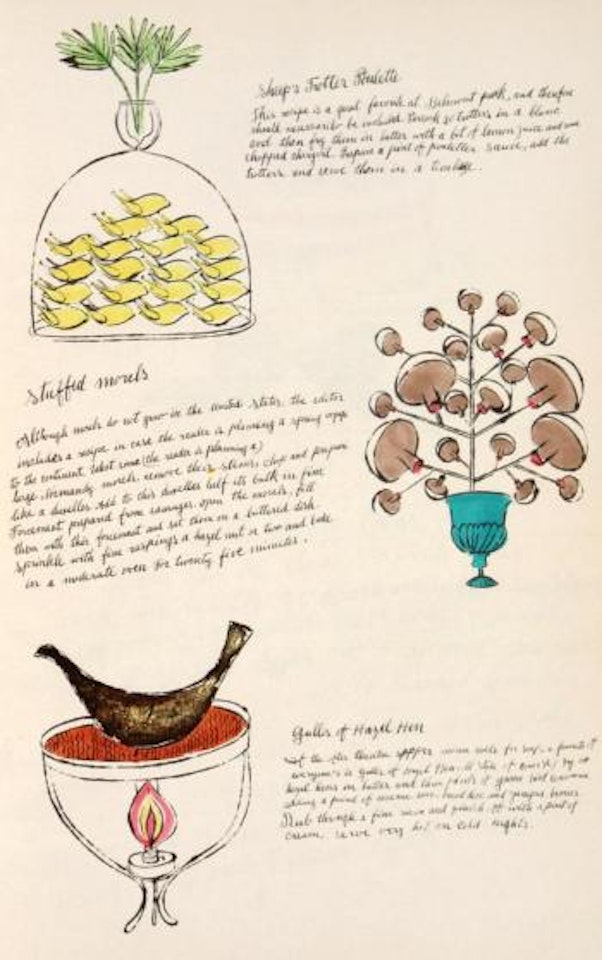 Sheep's Trotter Poulette
This recipe is a great favorite at Belmont park, and therefore
should necessarily be included. Poach 30 trotters in a blanc
and then fry them in butter with a bit of lemon juice and some
chopped chervil. Prepare a pint of poulette sauce, add the
trotters and serve them in a timbale.
Stuffed morels
Although morels do not grow in the United States, the editor
includes a recipe in case the reader is planning a spring voyage
to the continent. Select some (the reader is planning a)
large, Normandy morels, remove their stems, chop and prepare
like a duxelles. Add to this duxelles half its bulk in fine
forcemeat prepared from sausages, open the morels, fill
them with this forcemeat and set them in a buttered dish
sprinkle with fine raspings a hazel nut or two and bake
in a moderate oven for twenty five minutes.
Gulls of Hazel Hen
of the after theatre supper a favorite of
everyone's is Gulls of Hazel Hen.
hazel hens in butter and
adding a pound of
Rub through a fine sieve and finish off with a pint of
cream. serve very hot on cold nights.